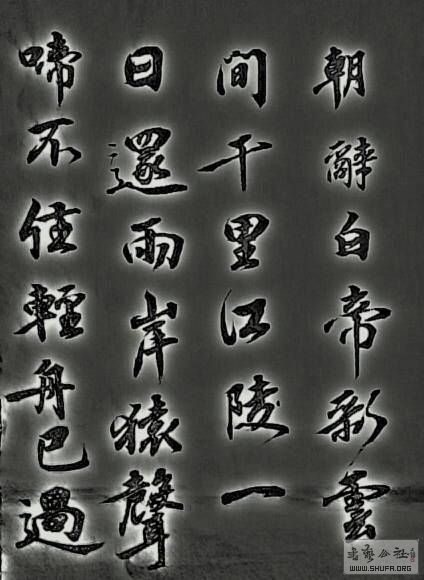 朝辭白帝彩雲
間千里江陵一
日還兩岸猿聲
啼不住輕舟已過
書藝公社
WWW.SHUFA.ORG